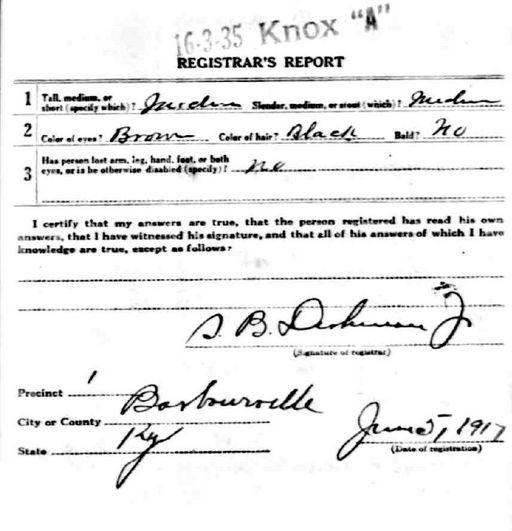 16-3-35 Knox "A"
REGISTRAR'S REPORT
1 Tall, medium, or short (specify which)? Medium Slender, medium, or stout (which)? Medium
2 Color of eyes? Brown Color of hair? Black Bald? No
3 Has person lost arm, leg, hand, foot, or both eyes, or is he otherwise disabled (specify)? no
I certify that my answers are true, that the person registered has read his own
answers, that I have witnessed his signature, and that all of his answers of which I have
knowledge are true, except as follows:
S. B. Dishman Jr
(Signature of registrar)
Precinct 1
City or County Barbourville
State Ky
June 5, 1917
(Date of registration)